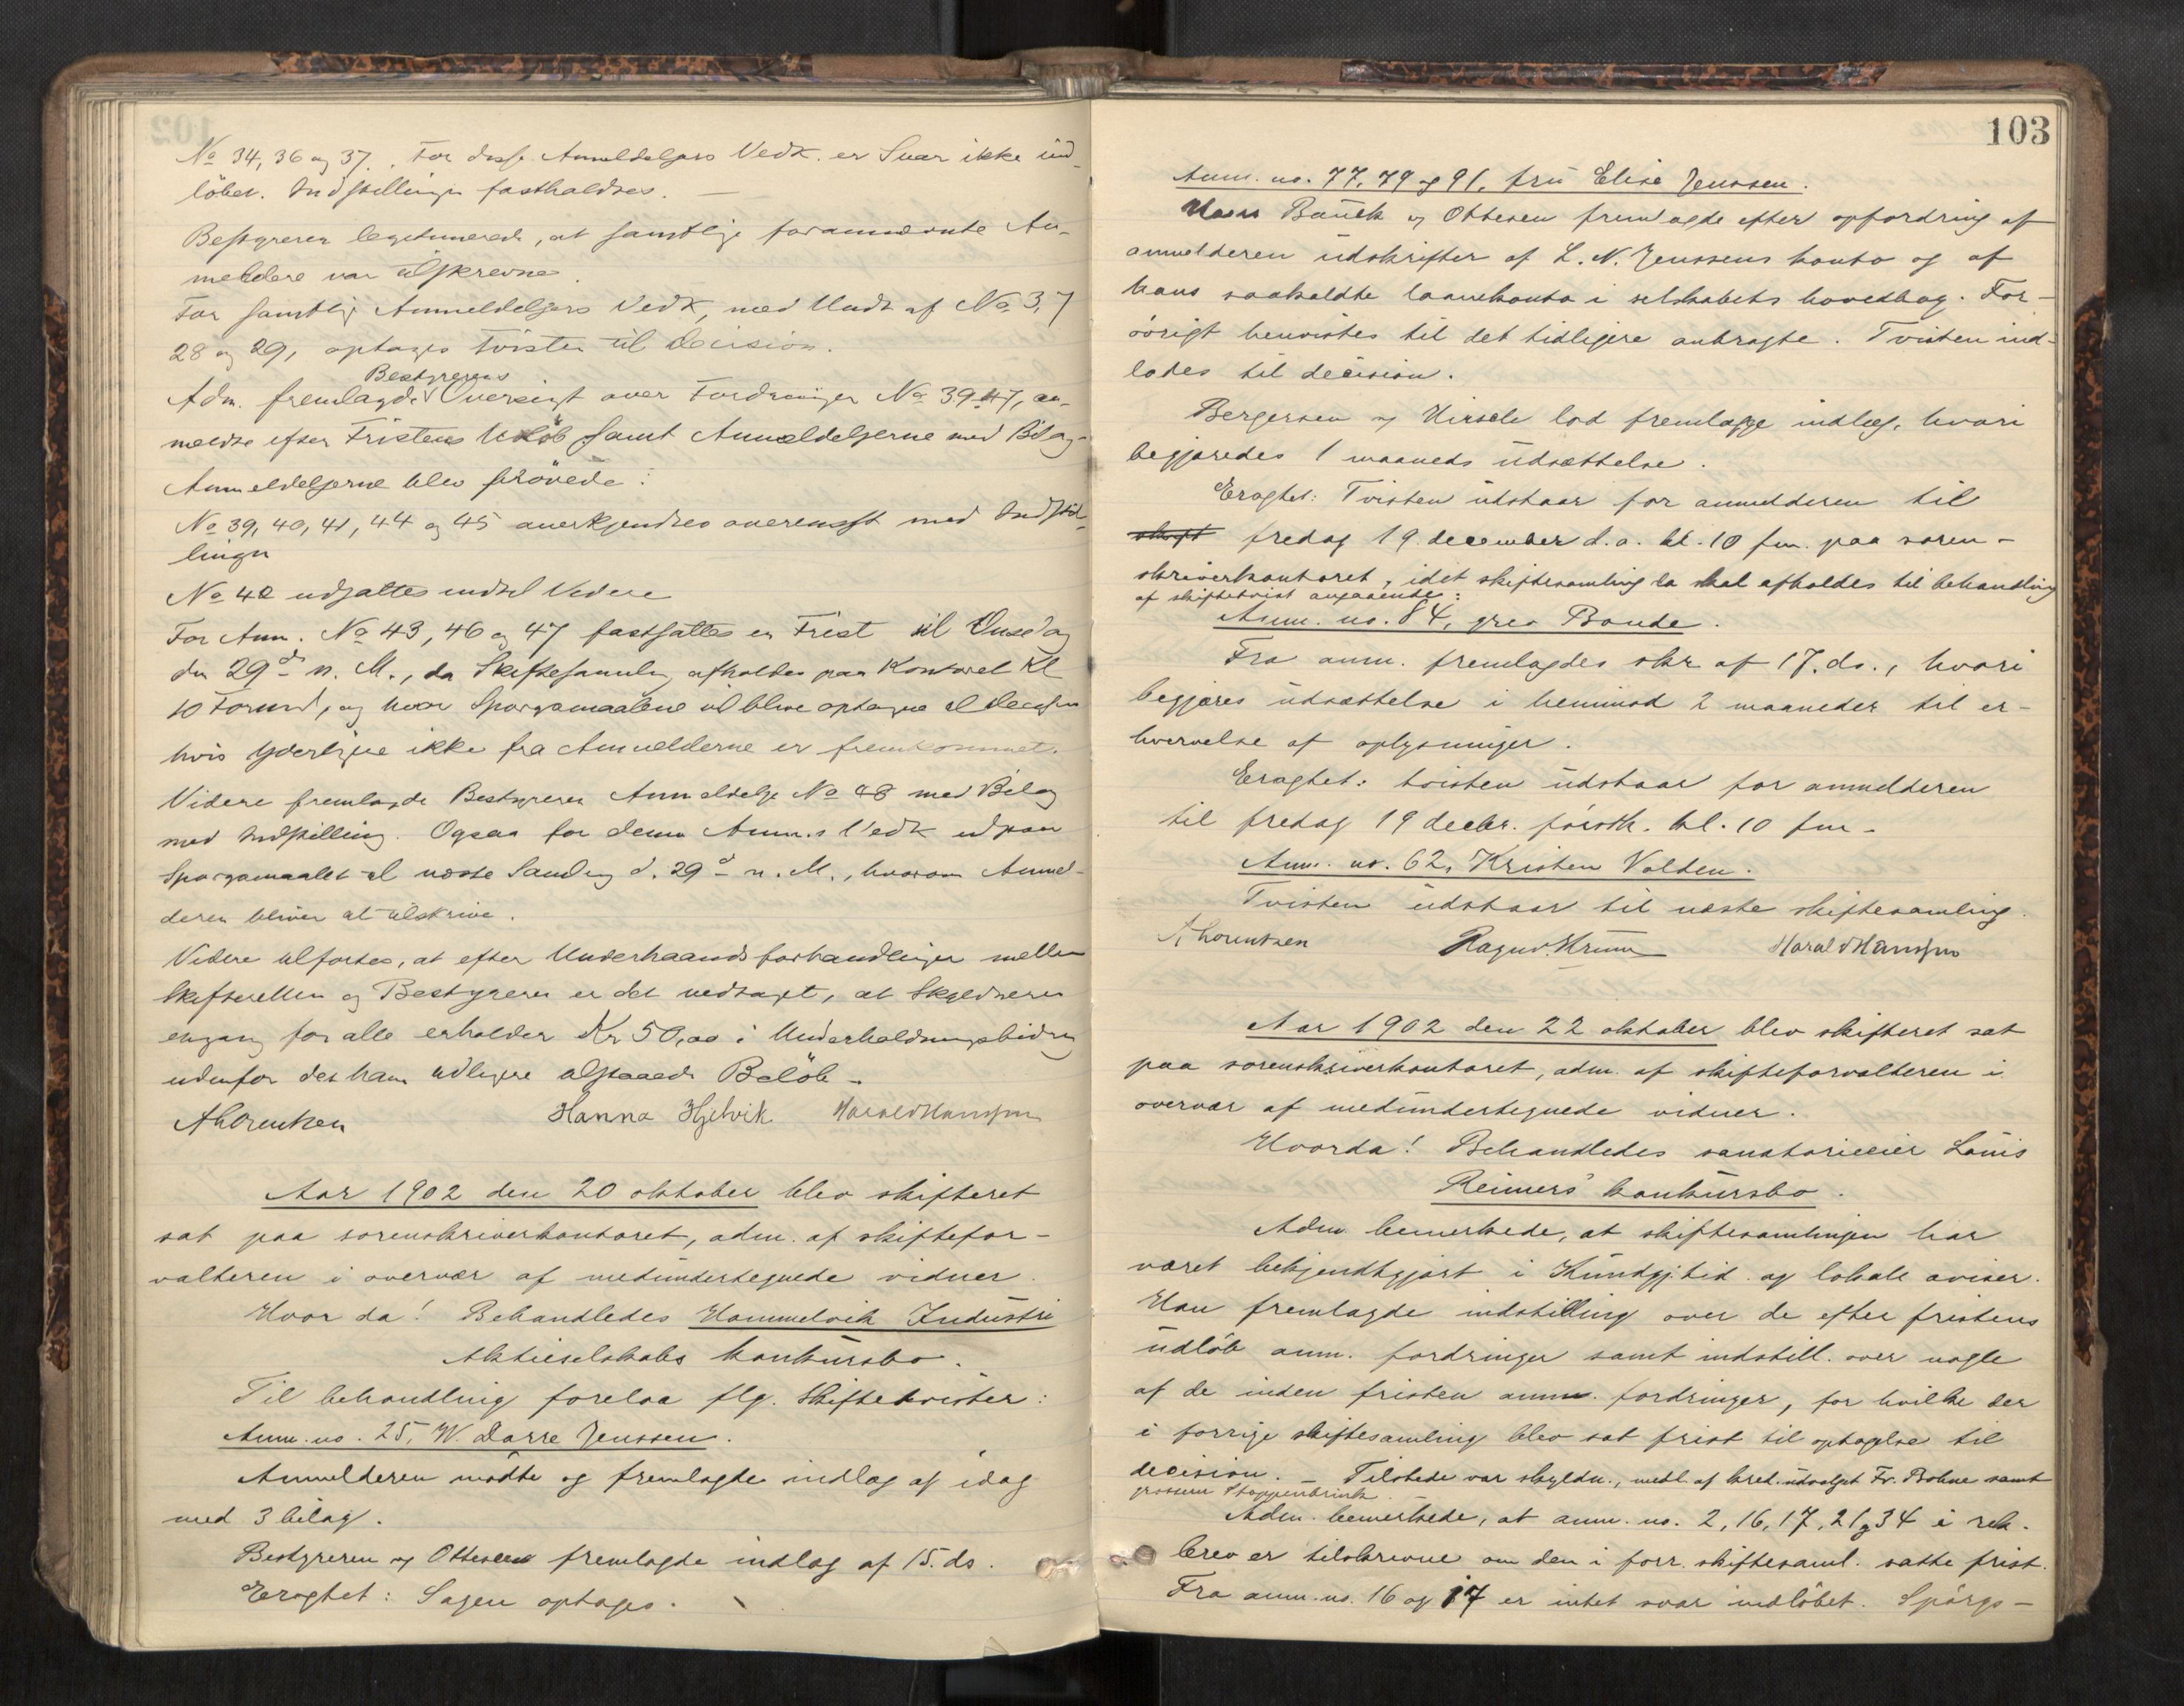 No 34, 36 og 37. For disse Anmeldelsers Vedk. er Svar ikke ind-
löbet. Indstillingen fastholdtes.
Bestyreren legitimerede, at samtlige forannævnte An-
meldere var tilskrevne.
For samtlige Anmeldelsers Vedk, med Undt af No 3, 7
28 og 29, optages Tvisten til Decision.
Bestyrerens
Adm. fremlagde Oversigt over Fordringer No 39-47, an-
meldte efter Fristens Udlöb samt Anmeldelserne med Bilag
Anmeldelserne blev prövede:
No 39, 40, 41, 44 og 45 anerkjendtes overensst med Indstil-
lingen
No 42 udsattes indtil Videre
For Anm. No 43, 46 og 47 fastsattes en Frist til Onsdag
den 29de n. M., da Skiftesamling afholdes paa Kontoret Kl
10 Formd, og hvor Spørgsmaalene vil blive optagne til Decision
hvis Yderligere ikke fra Anmelderne er fremkommet.
Videre fremlagde Bestyreren Anmeldelse No 48 med Bilag
med Indstilling. Ogsaa for denne Anm.s Vedk udstaar
Spørgsmaalet til næste Samling d. 29de n. M., hvorom Anmel-
deren bliver at tilskrive.
Videre tilførtes, at efter Underhaandsforhandlinger mellem
Skifteretten og Bestyreren er det vedtaget, at Skyldneren
engang for alle erholder Kr 50,00 i Underholdningsbidrag
udenfor det ham tidligere tilstaaede Beløb.
A Lorentzen Hanna Hjelvik Harald Hanssen
Aar 1902 den 20 oktober blev skifteret
sat paa sorenskriverkontoret, adm. af skiftefor-
valteren i overvær af medundertegnede vidner.
Hvor da! Behandledes Hommelvik Industri
Aktieselskabs konkursbo.
Til behandling forelaa flg. Skiftetvister:
Anm. no. 25, W. Darre Jenssen.
Anmelderen mødte og fremlagde indlæg af idag
med 3 bilag.
Bestyreren og Ottesen fremlagde indlæg af 15. ds.
Eragtet: Sagen optages.
103
Anm. no. 77, 79 og 91, fru Elise Jenssen.
Hans Bauck og Ottesen fremlagde efter opfordring af
anmelderen udskrifter af L. N. Jenssens konto og af
hans saakaldte laanekonto i selskabets hovedbog. For-
övrigt henvistes til det tidligere anbragte. Tvisten ind-
lades til decision.
Bergersen og Hirsch lod fremlægge indlæg, hvori
begjæredes 1 maaneds udsættelse.
Eragtet: Tvisten udstaar for anmelderen til
skift fredag 19. december d.a. kl. 10 fm. paa soren-
skriverkontoret, idet skiftesamling da skal afholdes til behandling
af skiftetvist angaaende:
Anm. no. 84, grev Bonde.
Fra anm. fremlagdes skr af 17. ds., hvori
begjæres udsættelse i henimod 2 maaneder til er-
hvervelse af oplysninger.
Eragtet: tvisten udstaar for anmelderen
til fredag 19 decbr. førstk. kl. 10 fm.
Anm. no. 62, Kristen Volden.
Tvisten udstaar til næste skiftesamling.
A Lorentzen Ragnv. Krum Harald Hanssen
Aar 1902 den 22 oktober blev skifteret sat
paa sorenskriverkontoret, adm. af skifteforvalteren i
overvær af medundertegnede vidner.
Hvorda! Behandledes sanatorieeier Louis
Reimers' konkursbo.
Adm bemerkede, at skiftesamlingen har
været bekjendtgjort i Kundgj.tid. og lokale aviser.
Han fremlagde indstilling over de efter fristens
udlöb anm. fordringer samt indstill. over nogle
af de inden fristen anm. fordringer, for hvilke der
i forrige skiftesamling blev sat frist til optagelse til
decision. – Tilstede var skyldn., medl. af kred.udvalget Fr. Bohne samt
grosserer Stoppenbrink.
Adm. bemerkede, at anm. no. 2, 16, 17, 21 og 34 i rek.
brev er tilskrevne om den i forr. skiftesaml. satte frist.
Fra anm. no. 16 og 17 er intet svar indlöbet. Spörgs-